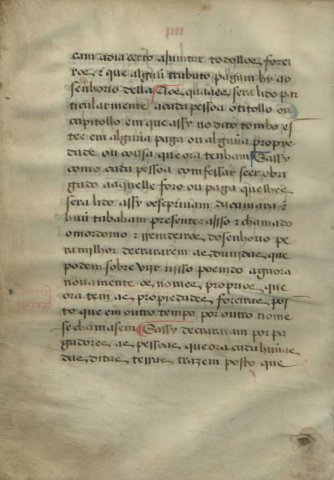 cam a dia certo ajuntar todollos forei
ros & que alguũ trabuto pagam hy ao
senhorio della Aos quaaes sera lido par
ticularmente a cada pessoa o titollo ou
capitollo em que assy no dito tombo es
tee em alguũa paga ou alguũa proprie
dade ou cousa que ora tenham E assy
como cada pessoa comfessar seer obri
gado aaquelle foro ou paga que lhes
sera lido assy o espriuam da camara &
huũ tabaliam presente a isso & chamado
o mordomo & Remdeiros do senhorio pe
ra milhor decrararem as duuidas que
podem sobre vijr nisso poendo agnora
nouamente os nomes proprios que
ora tem as propiedades foreiras pos
to que em outro tempo por outro nome
se chamasem E assy decraroram por pa
gadores as pessoas que ora cada huũas
das ditas terras trazem posto que